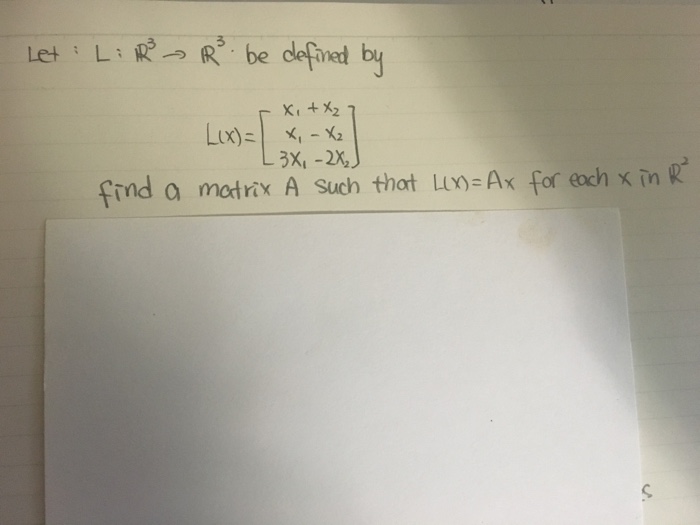 Let : L : ℝ³ → ℝ³. be defined by
L(x) = [ x₁ + x₂
x₁ - x₂
3x₁ - 2x₂ ]
find a matrix A such that L(x) = Ax for each x in ℝ²
s